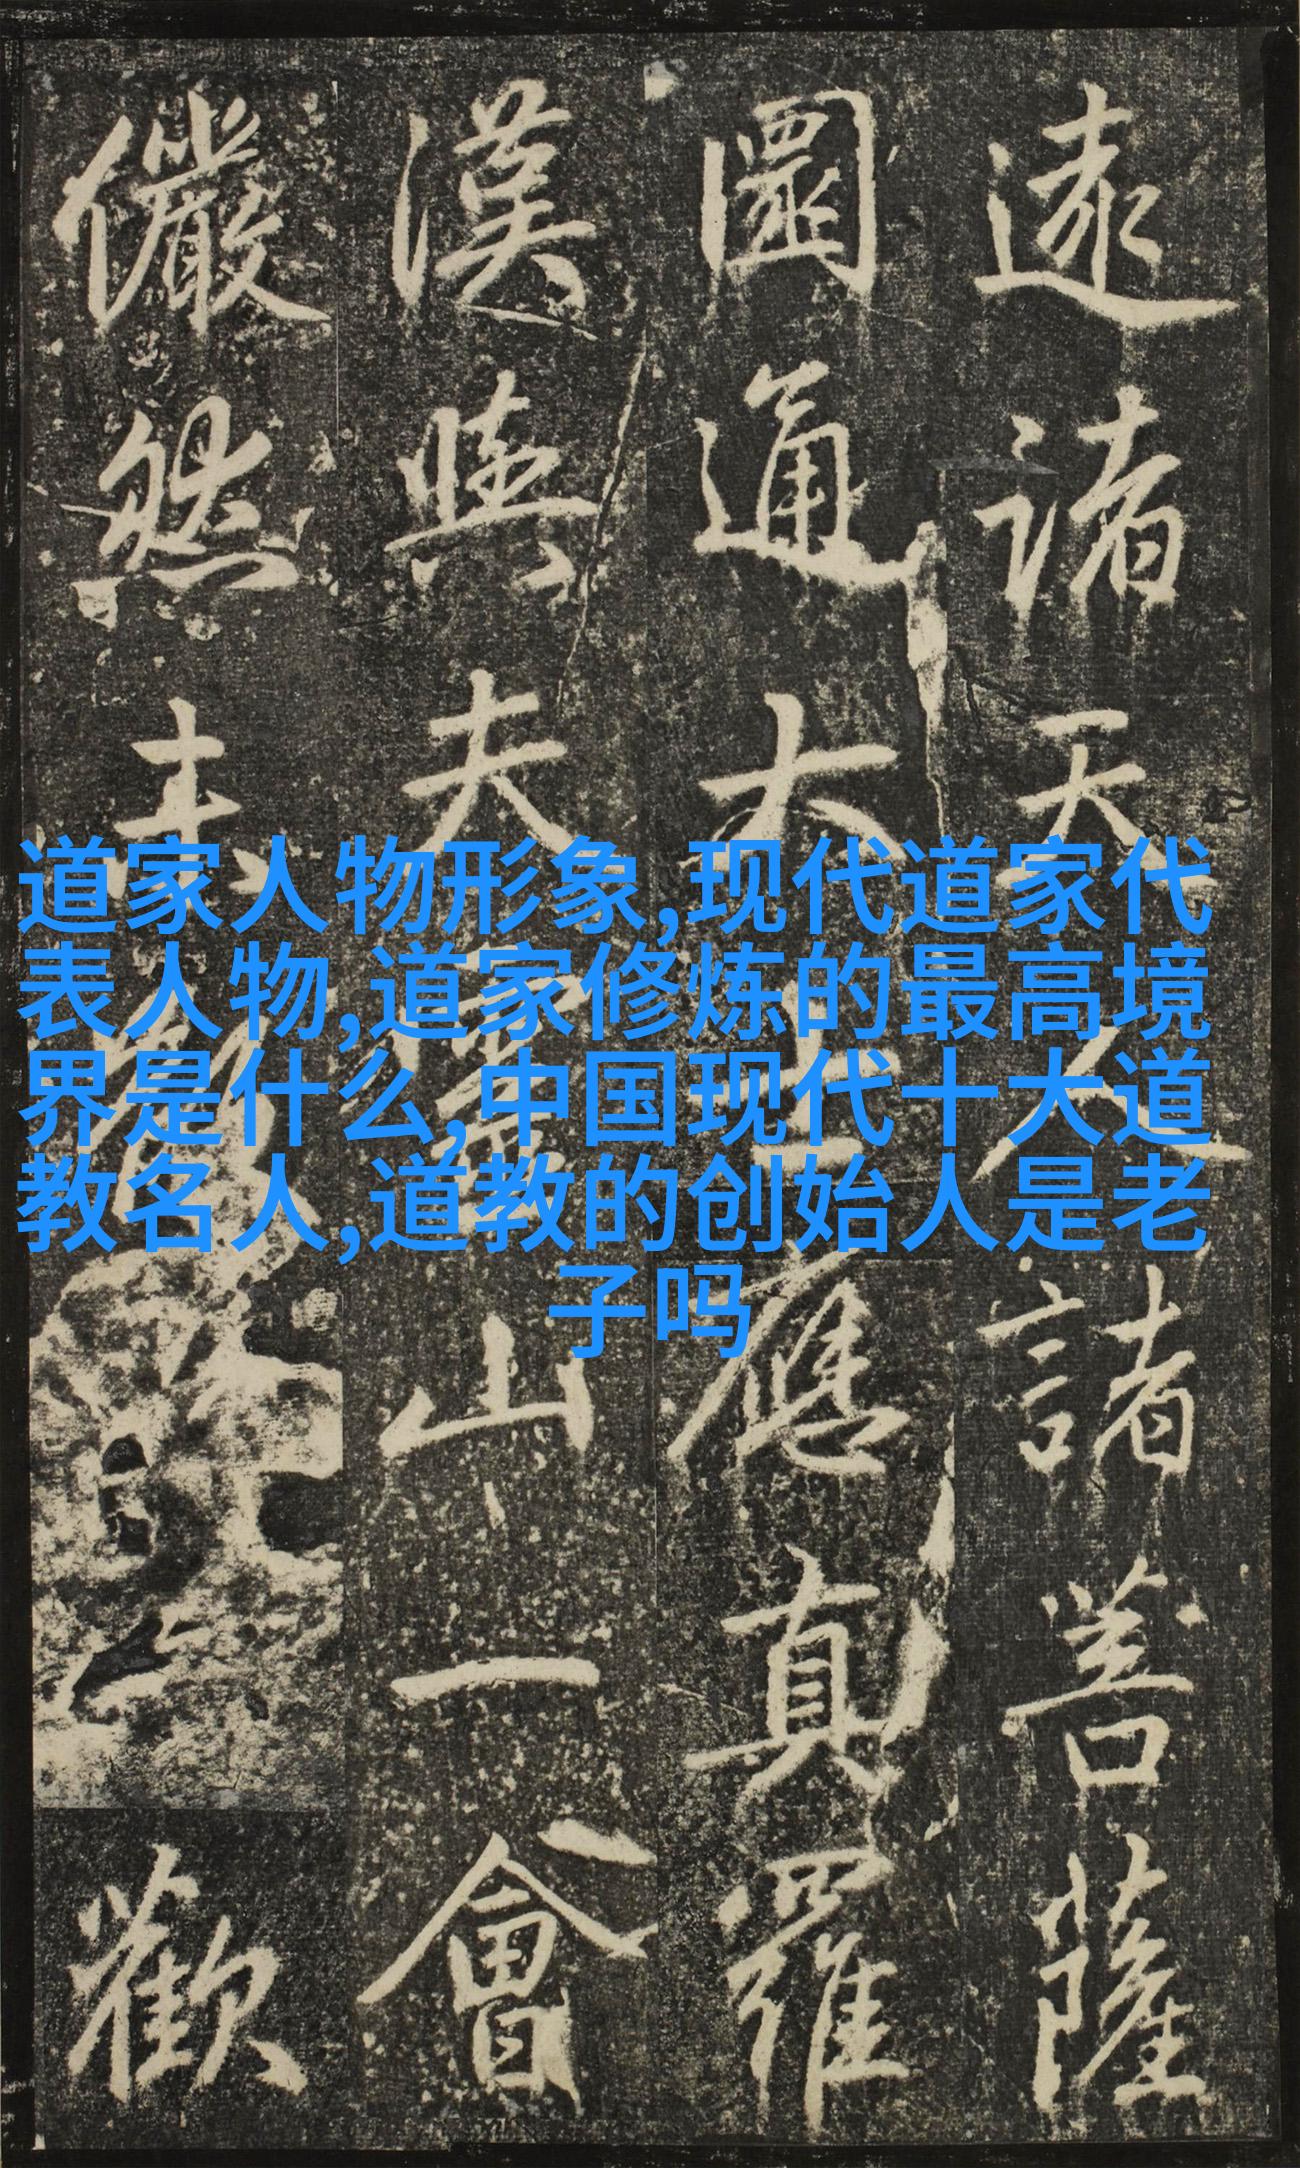 遠諸天人諸菩薩
圓通大士應真羅
漢與夫靈山一會
儼然未歡
道家人物形象,现代道家代
表人物,道家修炼的最高境
界是什么,中国现代十大道
教名人,道教的创始人是老
子吗